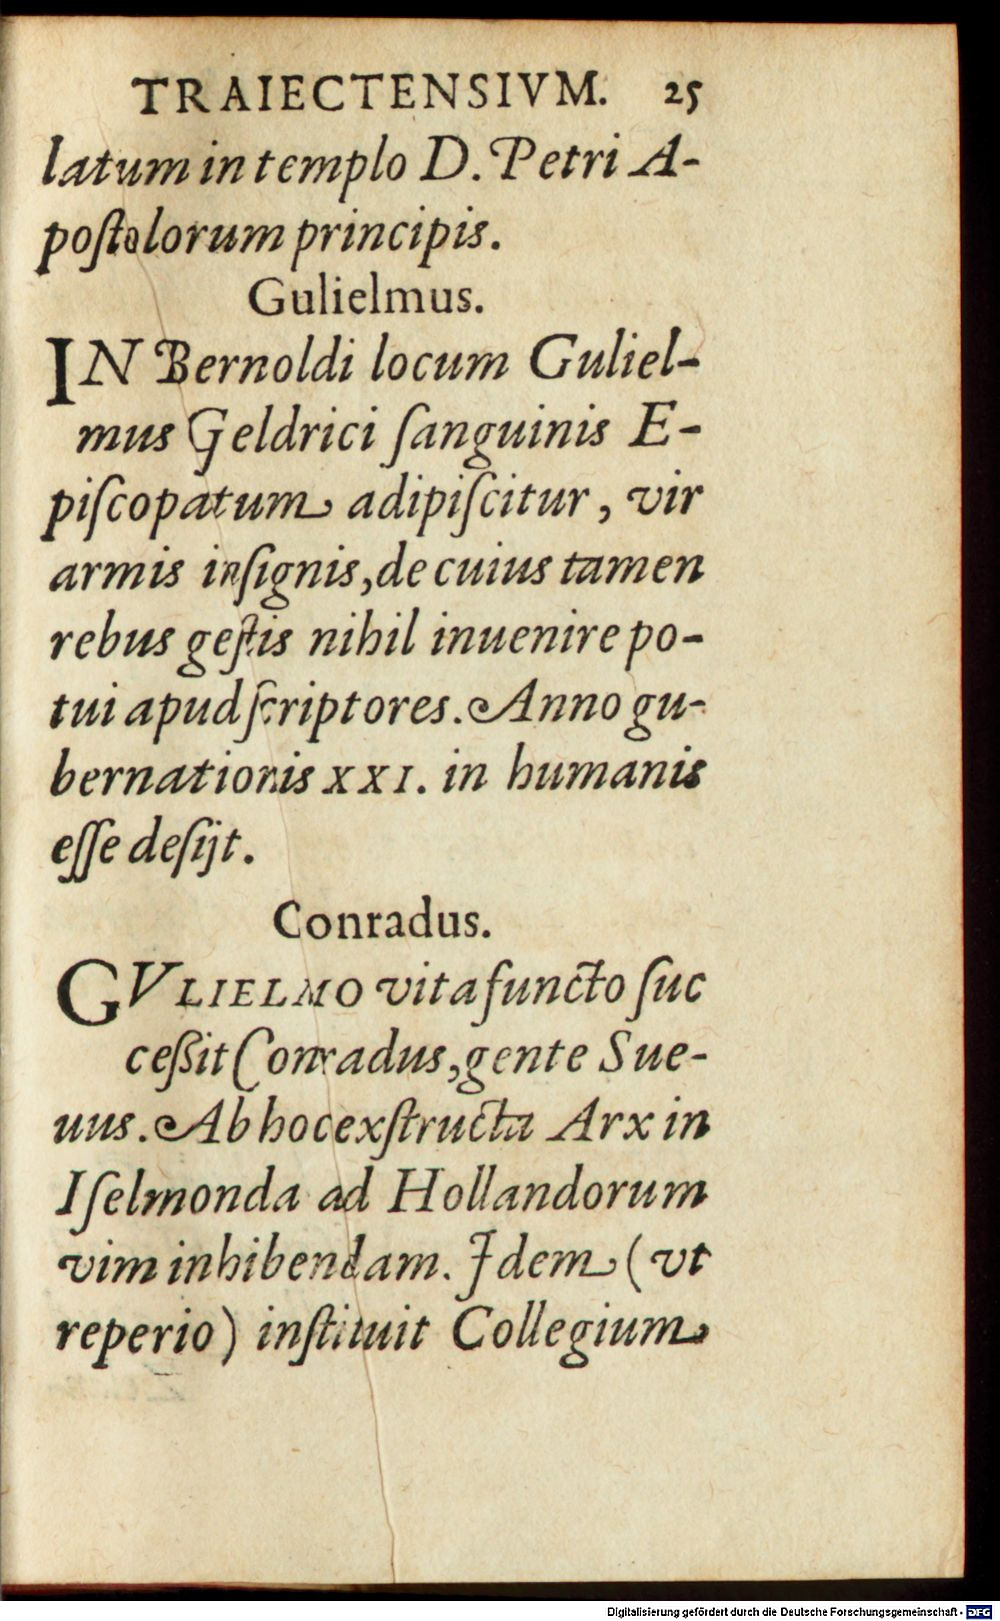 TRAIECTENSIVM. 25
latum in templo D. Petri A-
poſtolorum principis.
Gulielmus.
IN Bernoldi locum Guliel-
mus Geldrici ſanguinis E-
piſcopatum adipiſcitur, vir
armis inſignis, de cuius tamen
rebus geſtis nihil inuenire po-
tui apud ſcriptores. Anno gu-
bernationis XXI. in humanis
eſſe deſijt.
Conradus.
GVLIELMO vita functo ſuc
ceßit Conradus, gente Sue-
uus. Ab hoc exſtructa Arx in
Iſelmonda ad Hollandorum
vim inhibendam. Idem (vt
reperio) inſtituit Collegium
Digitalisierung gefördert durch die Deutsche Forschungsgemeinschaft - DFG